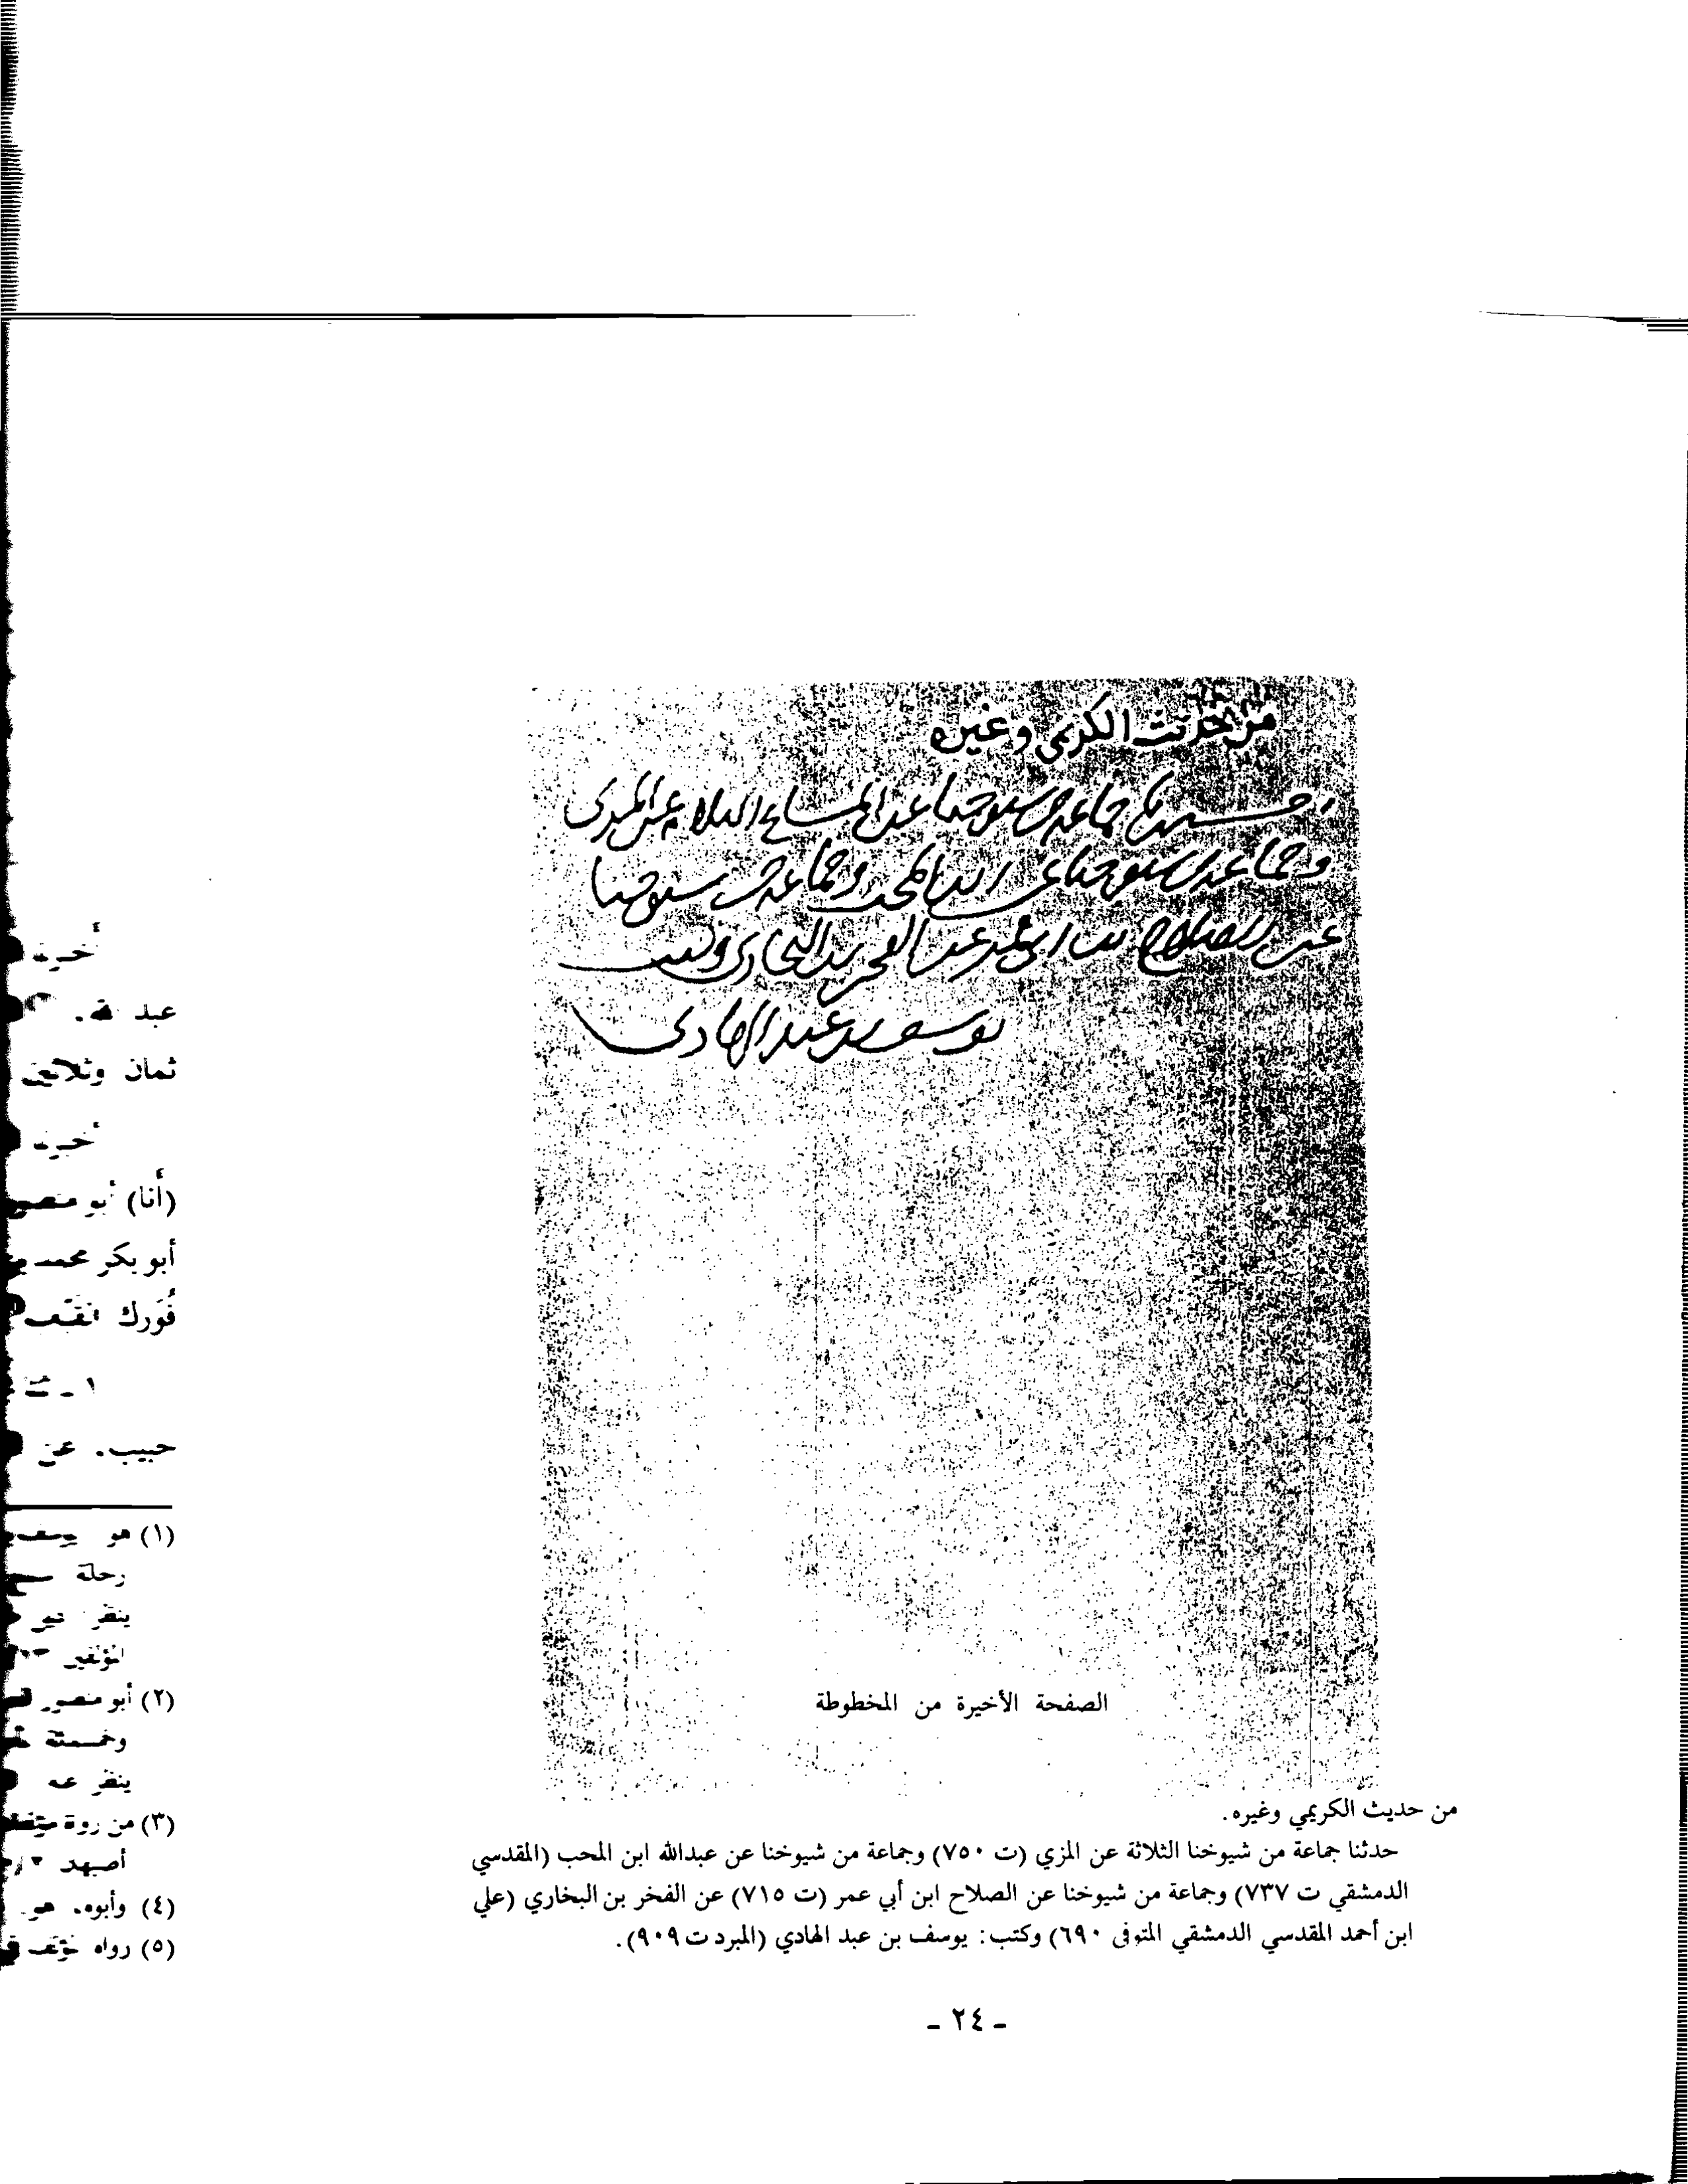 من حديث الكريمي وغيره
حدثنا جماعة من شيوخنا عن المشايخ الثلاثة عن المزي
وجماعة من شيوخنا عن ابن المحب وجماعة من شيوخنا
عن الصلاح بن أبي عمر عن الفخر بن البخاري وكتب
يوسف بن عبد الهادي
الصفحة الأخيرة من المخطوطة
من حديث الكريمي وغيره.
حدثنا جماعة من شيوخنا الثلاثة عن المزي (ت ٧٥٠) وجماعة من شيوخنا عن عبدالله ابن المحب (المقدسي
الدمشقي ت ٧٣٧) وجماعة من شيوخنا عن الصلاح ابن أبي عمر (ت ٧١٥) عن الفخر بن البخاري (علي
ابن أحمد المقدسي الدمشقي المتوفى ٦٩٠) وكتب: يوسف بن عبد الهادي (المبرد ت ٩٠٩).
- ٢٤ -
عبد
ثمان وثلاثين
(أنا) أبو
أبو بكر محمد
فُورك
١ -
حبيب. عن
(١) هو
رحلة
(٢) أبو
(٣) من
(٤) وأبوه. هو
(٥) رواه